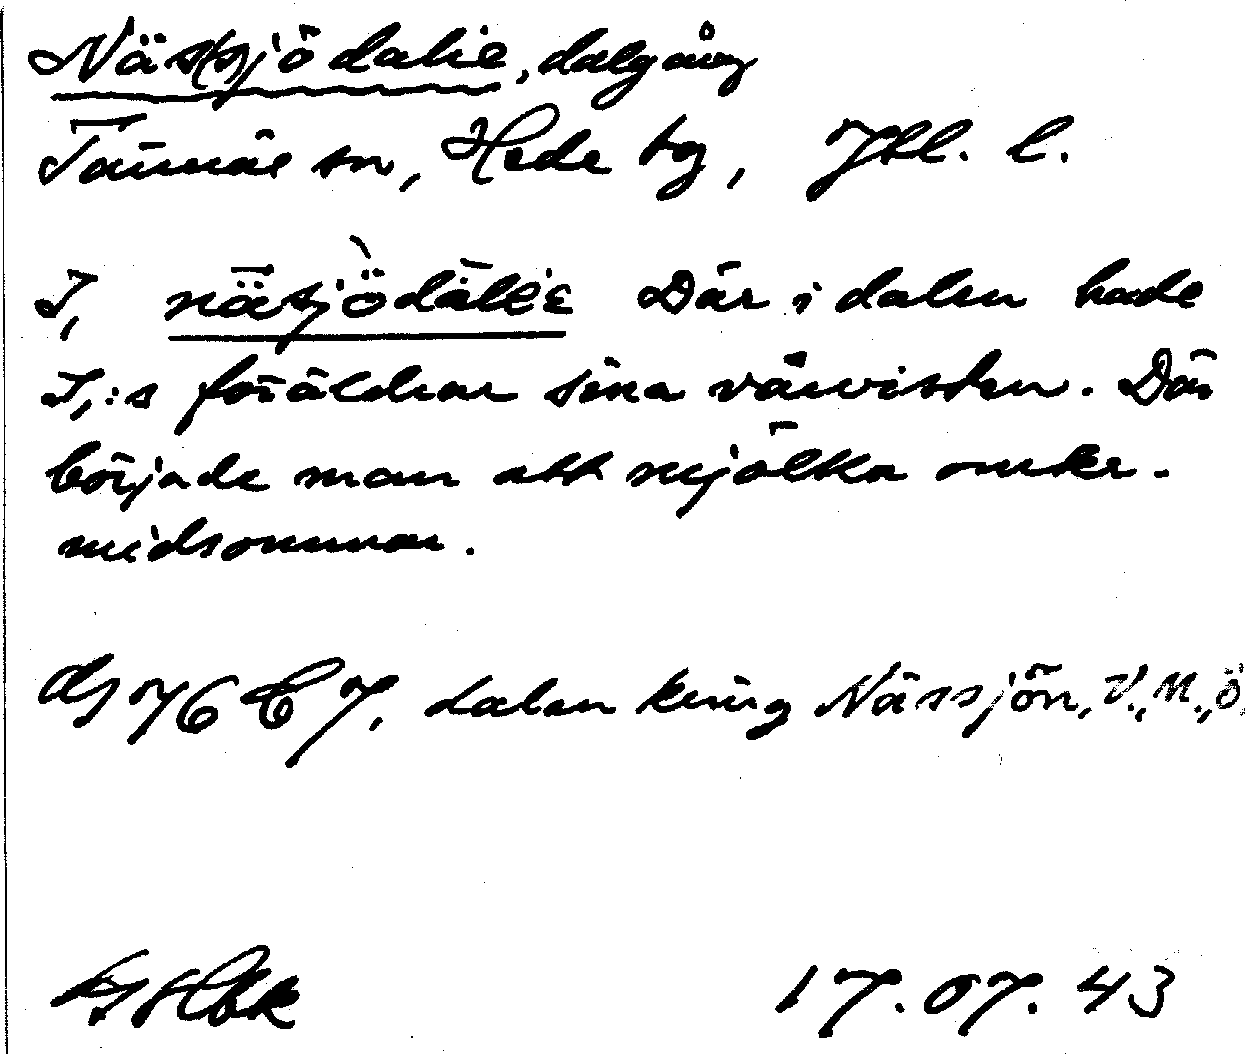 Näs(s)jödalie, dalgång
Tännäs sn, Hede tg, Jtl. l.
I, näsjödälìe Där i dalen hade
I,:s föräldrar sina vårvisten. Där
började man att mjölka omkr.
midsommar.
7, dalen kring Nässjön, V., M., ö.
17.07.43